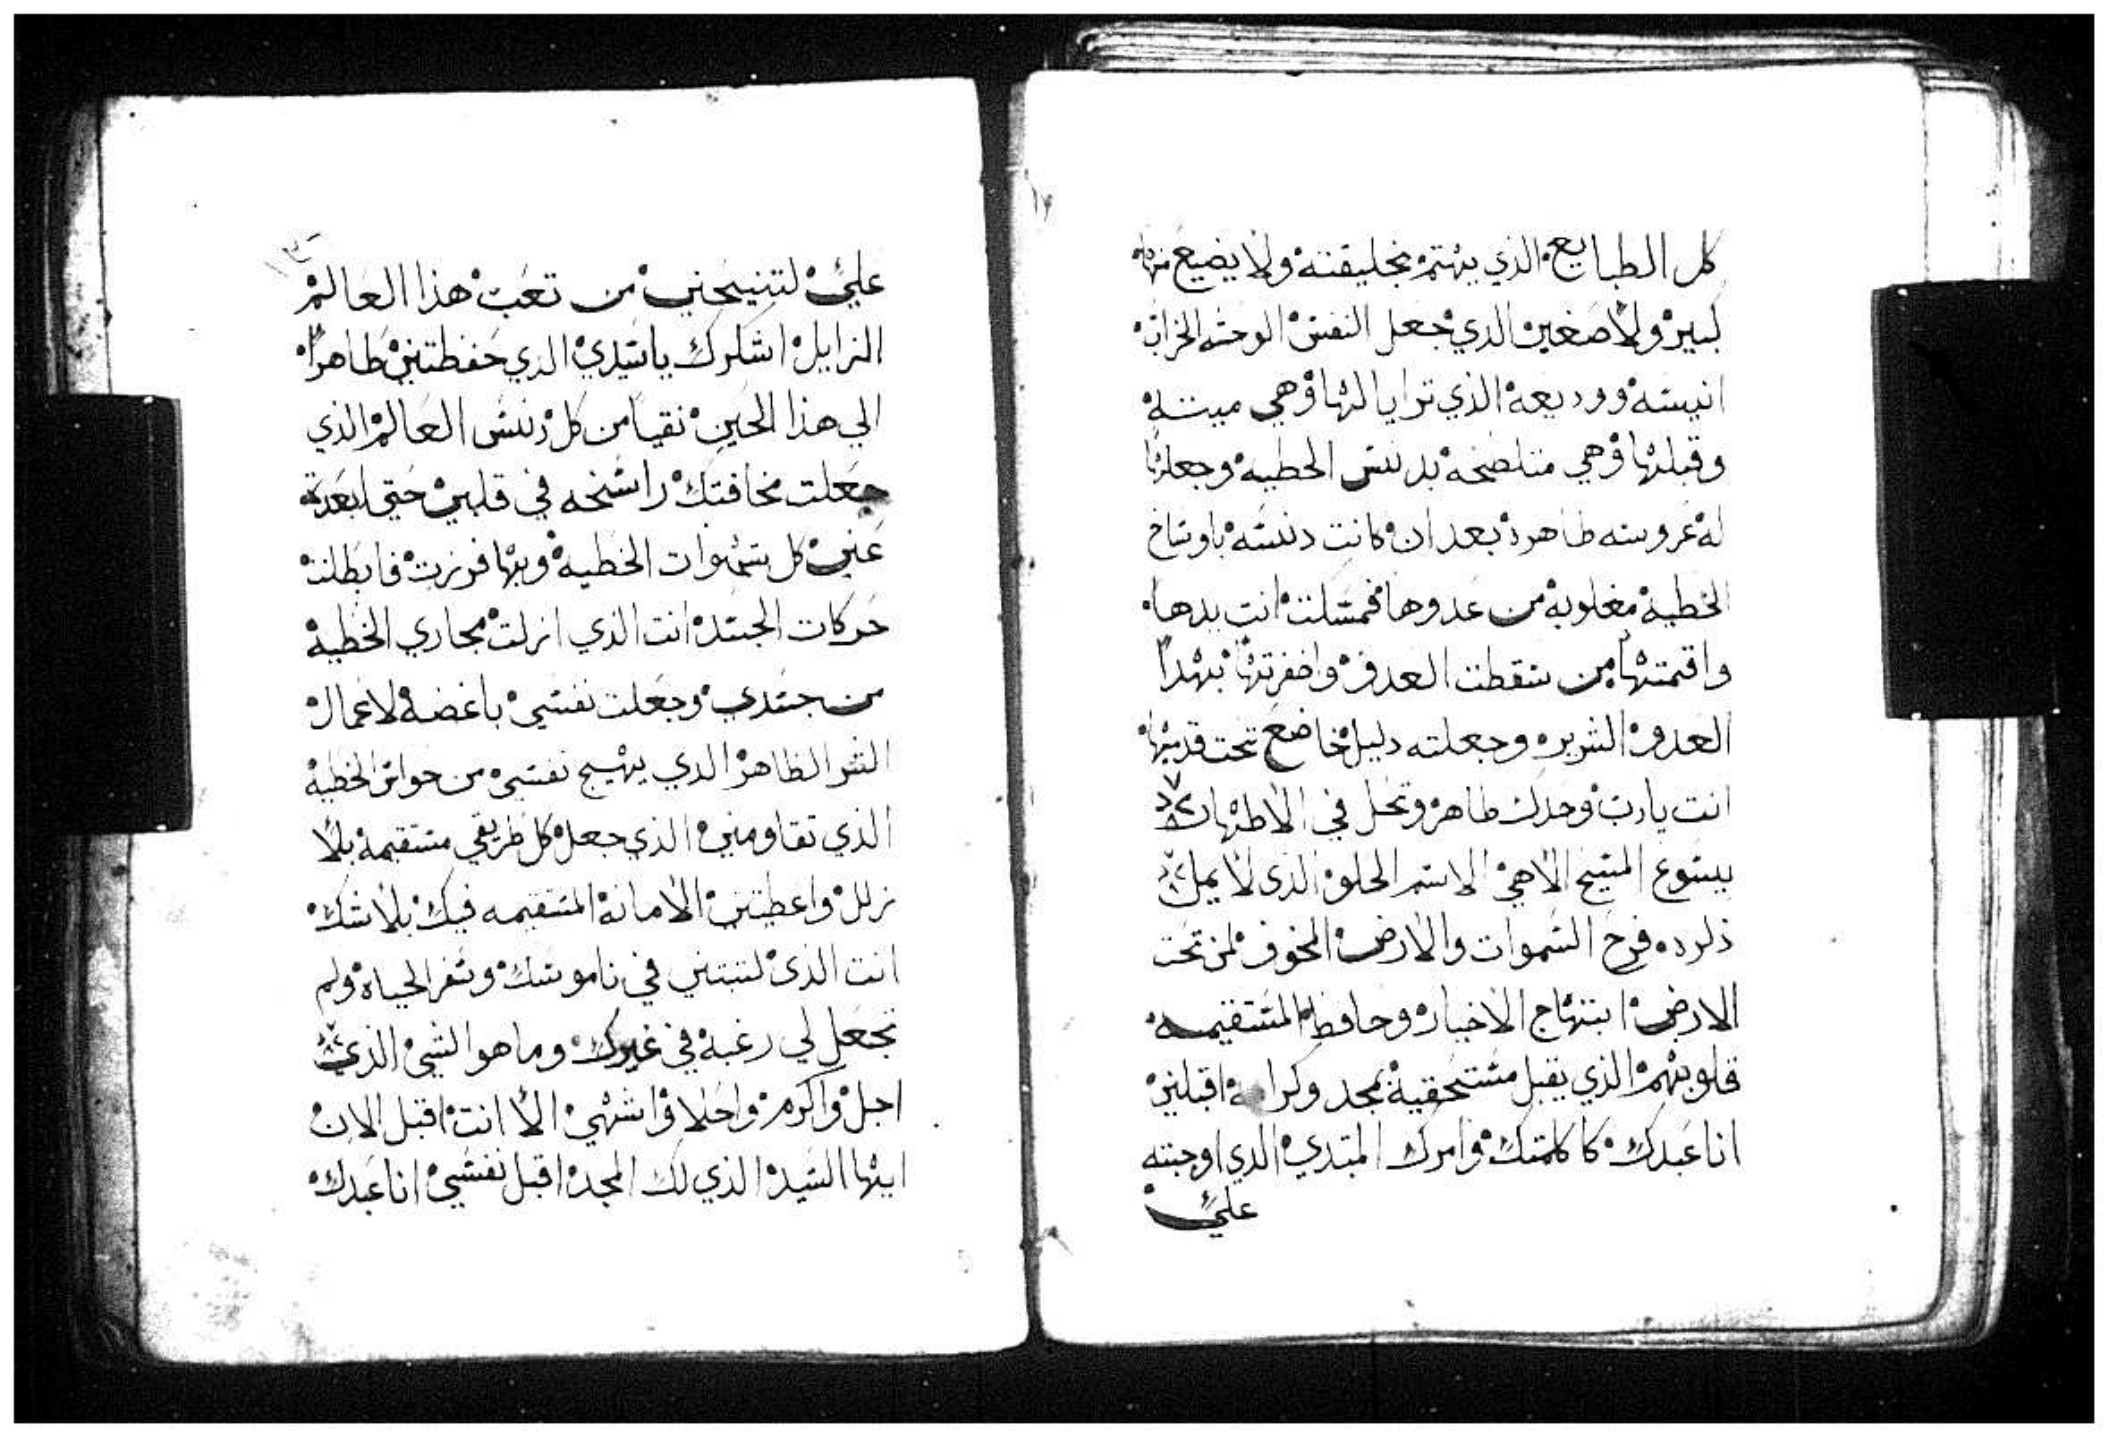 كل الطبايع الذي يهتم بخليقته ولا يضيع منها
كبير ولا صغير الذي جعل النفس الوحشه الخراب
انيسه ووديعه الذي ترايا لها وهي ميته
وقبلها وهي متلطخه بدنس الخطيه وجعلها
له عروسه طاهره بعد ان كانت دنسه باوساخ
الخطيه مغلوبه من عدوها فمسكت انت يدها
واقمتها من سقطت العدو واضفرتها بهدا
العدو الشرير وجعلته دليل خاضع تحت قدميها
انت يارب وحدك طاهر وتحل في الاطهار
يسوع المسيح الاهي الاسم الحلو الدى لا يمل
ذكره فرح السموات والارض المخوف لمن تحت
الارض ابتهاج الاخيار وحافظ المستقيمه
قلوبهم الذي يقبل مستحقية بمجد وكرامه اقبلني
انا عبدك كا كلمتك وامرك المبتدي الدي اوجبته
علي
١٢
علي لتنيحني من تعب هذا العالم
الزايل اشكرك ياسيدي الدي حفظتني طاهرا
الي هذا الحين نقيا من كل دنس العالم الذي
جعلت مخافتك راسخه في قلبي حتى ابعدة
عني كل شهوات الخطيه وبها فرزت فابطلت
حركات الجسد انت الذي ازلت مجاري الخطية
من جسدي وجعلت نفسي باغضة لاعمال
الشر الظاهر الدي يهيج نفسي من حواس الخطية
الذي تقاومني الذي جعل كل طريقي مستقيمه بلا
زلل واعطيتني الامانة المستقيمه فيك بلا شك
انت الذى لتبتني في ناموسك وسفر الحياه ولم
تجعل لي رغبة في غيرك وما هو الشي الذي
اجل واكرم واحلا واشهي الا انت اقبل الان
ايها السيد الذي لك المجد اقبل نفسي انا عبدك